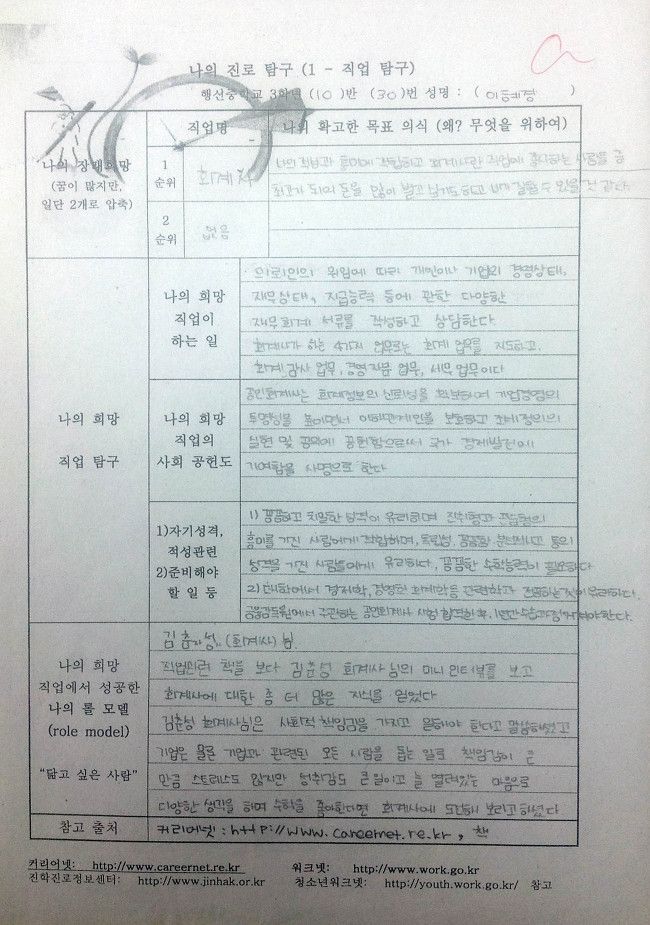 나의 진로 탐구 (1 - 직업 탐구)
행선중학교 3학년 (10)반 (30)번 성명 : (이혜정)
직업명
나의 확고한 목표 의식 (왜? 무엇을 위하여)
나의 장래희망
(꿈이 많지만,
일단 2개로 압축)
1
순위
회계사
나의 적성과 흥미에 적합하고 회계사란 직업에 종사하는 사람들 중
최고가 되어 돈을 많이 벌고 남기도하고 내가 잘할 수 있을 것 같다
2
순위
없음
나의 희망
직업 탐구
나의 희망
직업이
하는 일
의뢰인의 위임에 따라 개인이나 기업의 경영상태,
재무상태, 지급능력 등에 관한 다양한
재무회계 서류를 작성하고 상담한다
회계사가 하는 4가지 업무로는 회계 업무를 지도하고,
회계감사 업무, 경영자문 업무, 세무 업무이다
나의 희망
직업의
사회 공헌도
공인회계사는 회계정보의 신뢰성을 확보하여 기업경영의
투명성을 높이면서 이해관계인을 보호하고 조세정의의
실현 및 공익에 공헌함으로써 국가 경제발전에
기여함을 사명으로 한다
1)자기성격,
적성관련
2)준비해야
할 일 등
1) 꼼꼼하고 치밀한 성격이 유리하며 진취형과 관습형의
흥미를 가진 사람에게 적합하며, 독립성, 꼼꼼함, 분석적사고 등의
성격을 가진 사람들에게 유리하다, 꼼꼼한 수학능력이 필요하다
2) 대학에서 경제학, 경영학 회계학등 관련학과 전공하는것이 유리하다.
금융감독원에서 주관하는 공인회계사 시험 합격한 후, 1년간 수습과정 거쳐야한다.
나의 희망
직업에서 성공한
나의 롤 모델
(role model)
"닮고 싶은 사람"
김춘성 (회계사) 님
직업관련 책을 보다 김춘성 회계사님의 미니인터뷰를 보고
회계사에 대한 좀 더 많은 지식을 얻었다
김춘성 회계사님은 사회적 책임감을 가지고 일해야 한다고 말씀하셨고
기업은 물론 기업과 관련된 모든 사람을 돕는 일로 책임감이 큰
만큼 스트레스도 많지만 성취감도 큰일이고 늘 열려있는 마음으로
다양한 생각을 하며 수학을 좋아한다면 회계사에 도전해 보라고하셨다
참고 출처
커리어넷 : http://www.careernet.re.kr, 책
커리어넷: http://www.careernet.re.kr 워크넷: http://www.work.go.kr
진학진로정보센터: http://www.jinhak.or.kr 청소년워크넷: http://youth.work.go.kr/ 참고